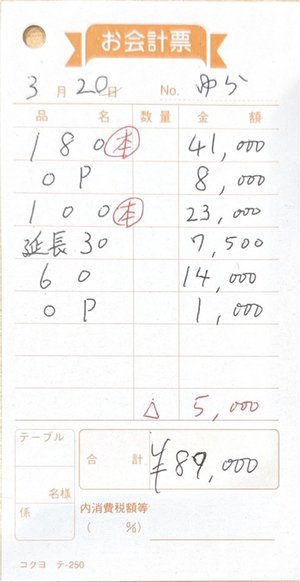 お会計票
3月20日 No. ゆら
品名 数量 金額
180 本 41,000
OP 8,000
100 本 23,000
延長30 7,500
60 14,000
OP 1,000
△ 5,000
テーブル
名様
係
合計 ¥89,000
内消費税額等
( %)
コクヨ テ-250